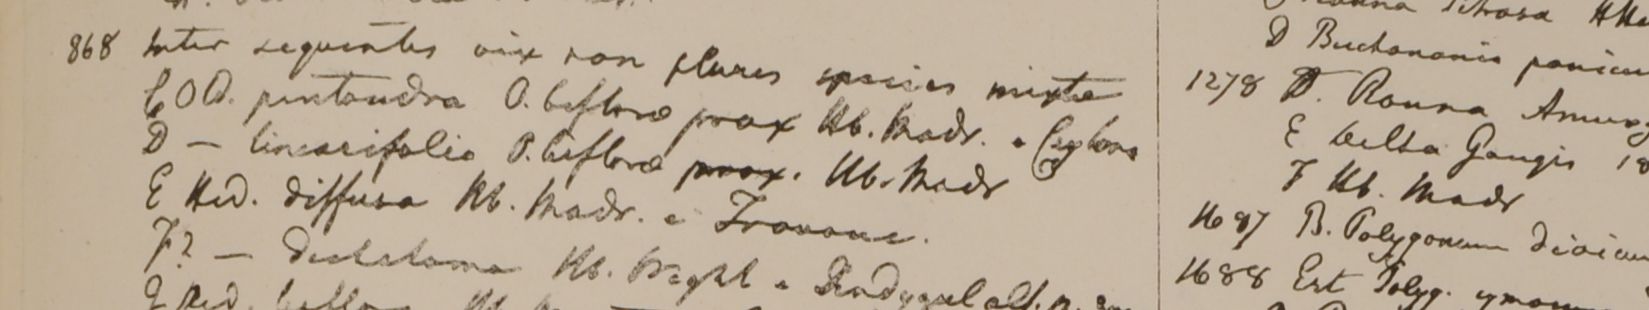 868 Inter sequentes vix non plures species mixtae
C Old. pentandra O. biflorae prox Hb. Madr. e Ceylona
D — linearifolia O. biflorae prox. Hb. Madr
E Hed. diffusa Hb. Madr. e Travanc.
F? — dichotoma Hb. Wight e Dindygul alt.
G Hed. biflora Hb.
D Buchanania panicu
1278 D. Rouna Amwo
E Delta Gangis 18
F Hb. Madr
1687 B. Polygonum dioicum
1688 Est Polyg. cymosum